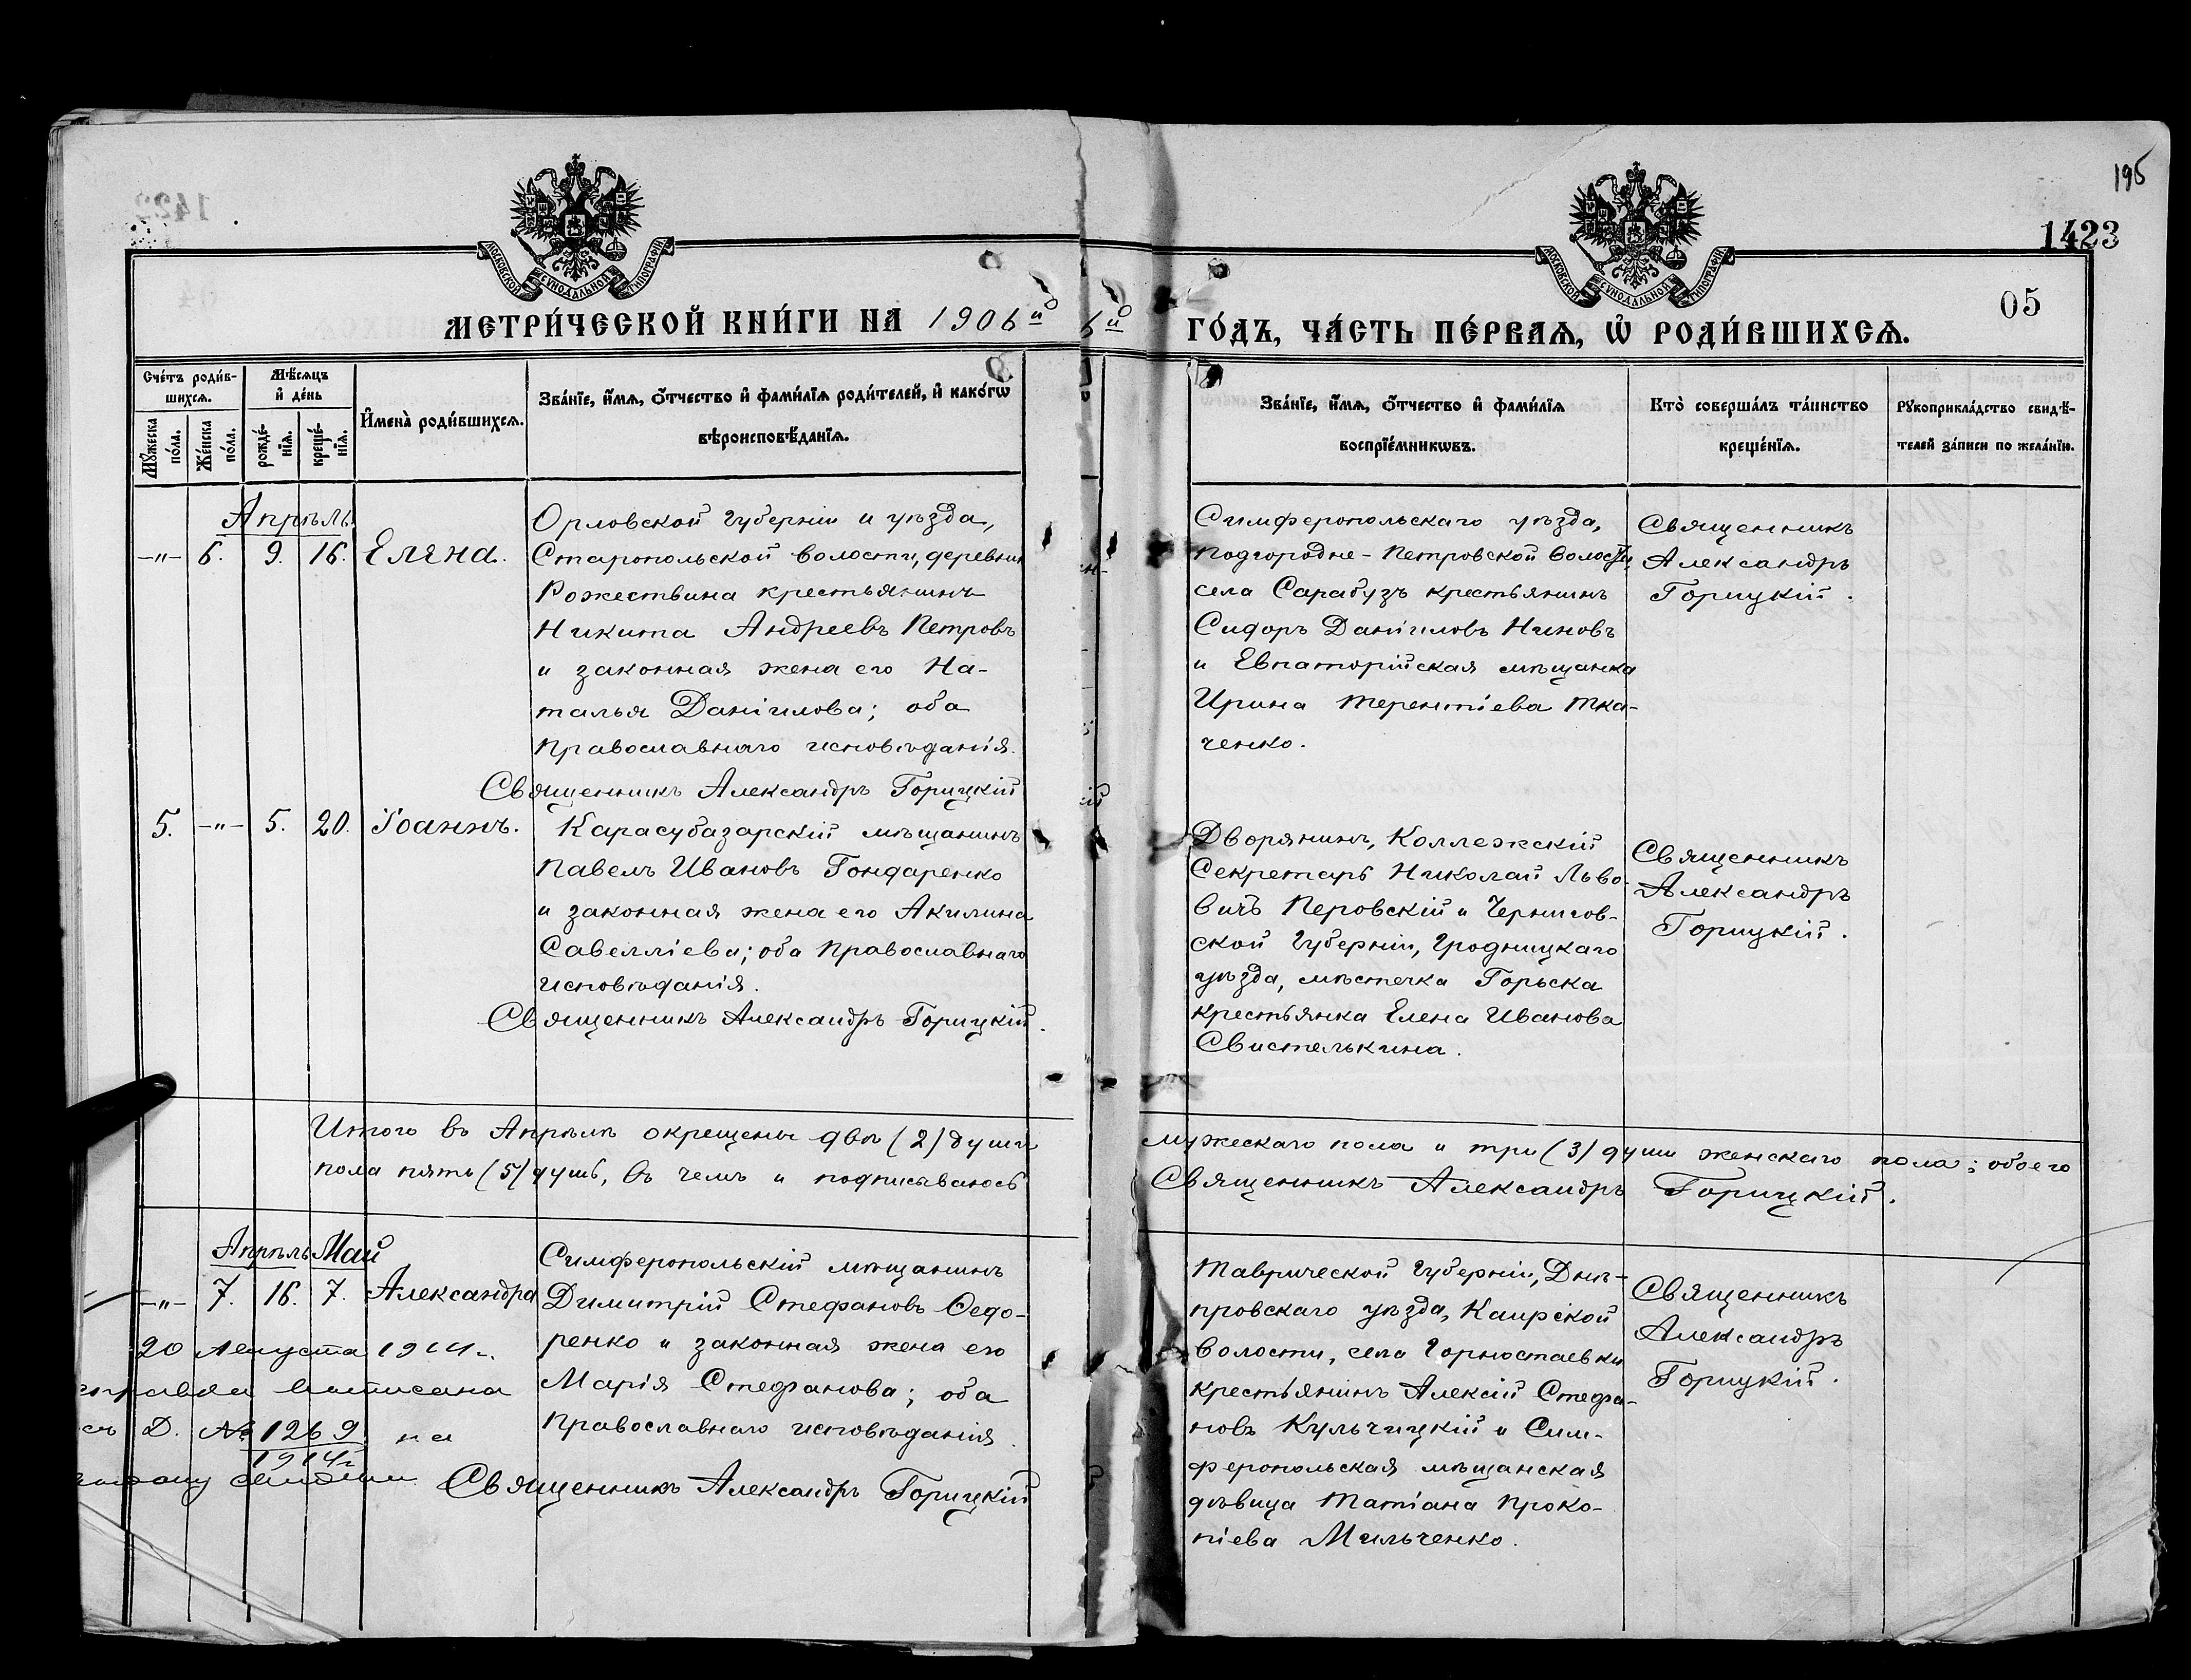 195
1423
05
МОСКОВСКОЙ СУНОДАЛЬНОЙ ТИПОГРАФІИ
МОСКОВСКОЙ СУНОДАЛЬНОЙ ТИПОГРАФІИ
МЕТРИ́ЧЕСКОЙ КНИ́ГИ НА 1906й
6й ГО́ДЪ, ЧА́СТЬ ПЕ́РВАЯ, Ѡ҆ РОДИ́ВШИХСЯ.
Сче́тъ роди́в-
шихся.
Мꙋ́жеска по́ла.
Же́нска по́ла.
Мѣ́сяцъ
и҆ де́нь
рожде́-
нїя.
креще́-
нїя.
И҆мена̀ роди́вшихся.
Зва́нїе, и҆́мя, ѻ҆́тчество и҆ фами́лїя роди́телей, и҆ како́гѡ
вѣроисповѣ́данїя.
Зва́нїе, и҆́мя, ѻ҆́тчество и҆ фами́лїя
воспрїе́мникѡвъ.
Кто̀ соверша́лъ та́инство
креще́нїя.
Рꙋкоприкла́дство свидѣ́-
телей за́писи по жела́нїю.
Апрѣль
-"- 6. 9. 16. Елена.
Орловской губерніи и уѣзда,
Старопольской волости, деревни
Рожествина крестьянинъ
Никита Андреевъ Петровъ
и законная жена его На-
талья Даніилова; оба
православнаго исповѣданія.
Священникъ Александръ Горицкій
Симферопольскаго уѣзда,
Подгородне-Петровской волости,
села Сарабузъ крестьянинъ
Сидоръ Даніиловъ Ниновъ
и Евпаторійская мѣщанка
Ирина Терентіева Тка-
ченко.
Священникъ
Александръ
Горицкій.
5. -"- 5. 20. Іоаннъ.
Карасубазарскій мѣщанинъ
Павелъ Ивановъ Гондаренко
и законная жена его Акилина
Савелліева; оба православнаго
исповѣданія.
Священникъ Александръ Горицкій.
Дворянинъ, Коллежскій
Секретарь Николай Льво-
вичъ Перовскій и Чернигов-
ской губерніи, Гродницкаго
уѣзда, мѣстечка Горьска
крестьянка Елена Иванова
Свистелькина.
Священникъ
Александръ
Горицкій.
Итого въ Апрѣлѣ окрещены двѣ (2) души мужескаго пола и три (3) души женскаго пола; обоего
пола пять (5) душъ, въ чемъ и подписываюсь Священникъ Александръ Горицкій.
Апрѣль Май
-"- 7. 16. 7. Александра
20 Августа 1914 г.
выписана
Д. № 1269
1914 г.
на
Симферопольскій мѣщанинъ
Димитрій Стефановъ Ѳедо-
ренко и законная жена его
Марія Стефанова; оба
православнаго исповѣданія.
Священникъ Александръ Горицкій
Таврической губерніи, Днѣ-
провскаго уѣзда, Каирской
волости, села Горностаевки
крестьянинъ Алексій Стефа-
новъ Кульчицкій и Сим-
феропольская мѣщанская
дѣвица Татіана Проко-
піева Мильченко.
Священникъ
Александръ
Горицкій.